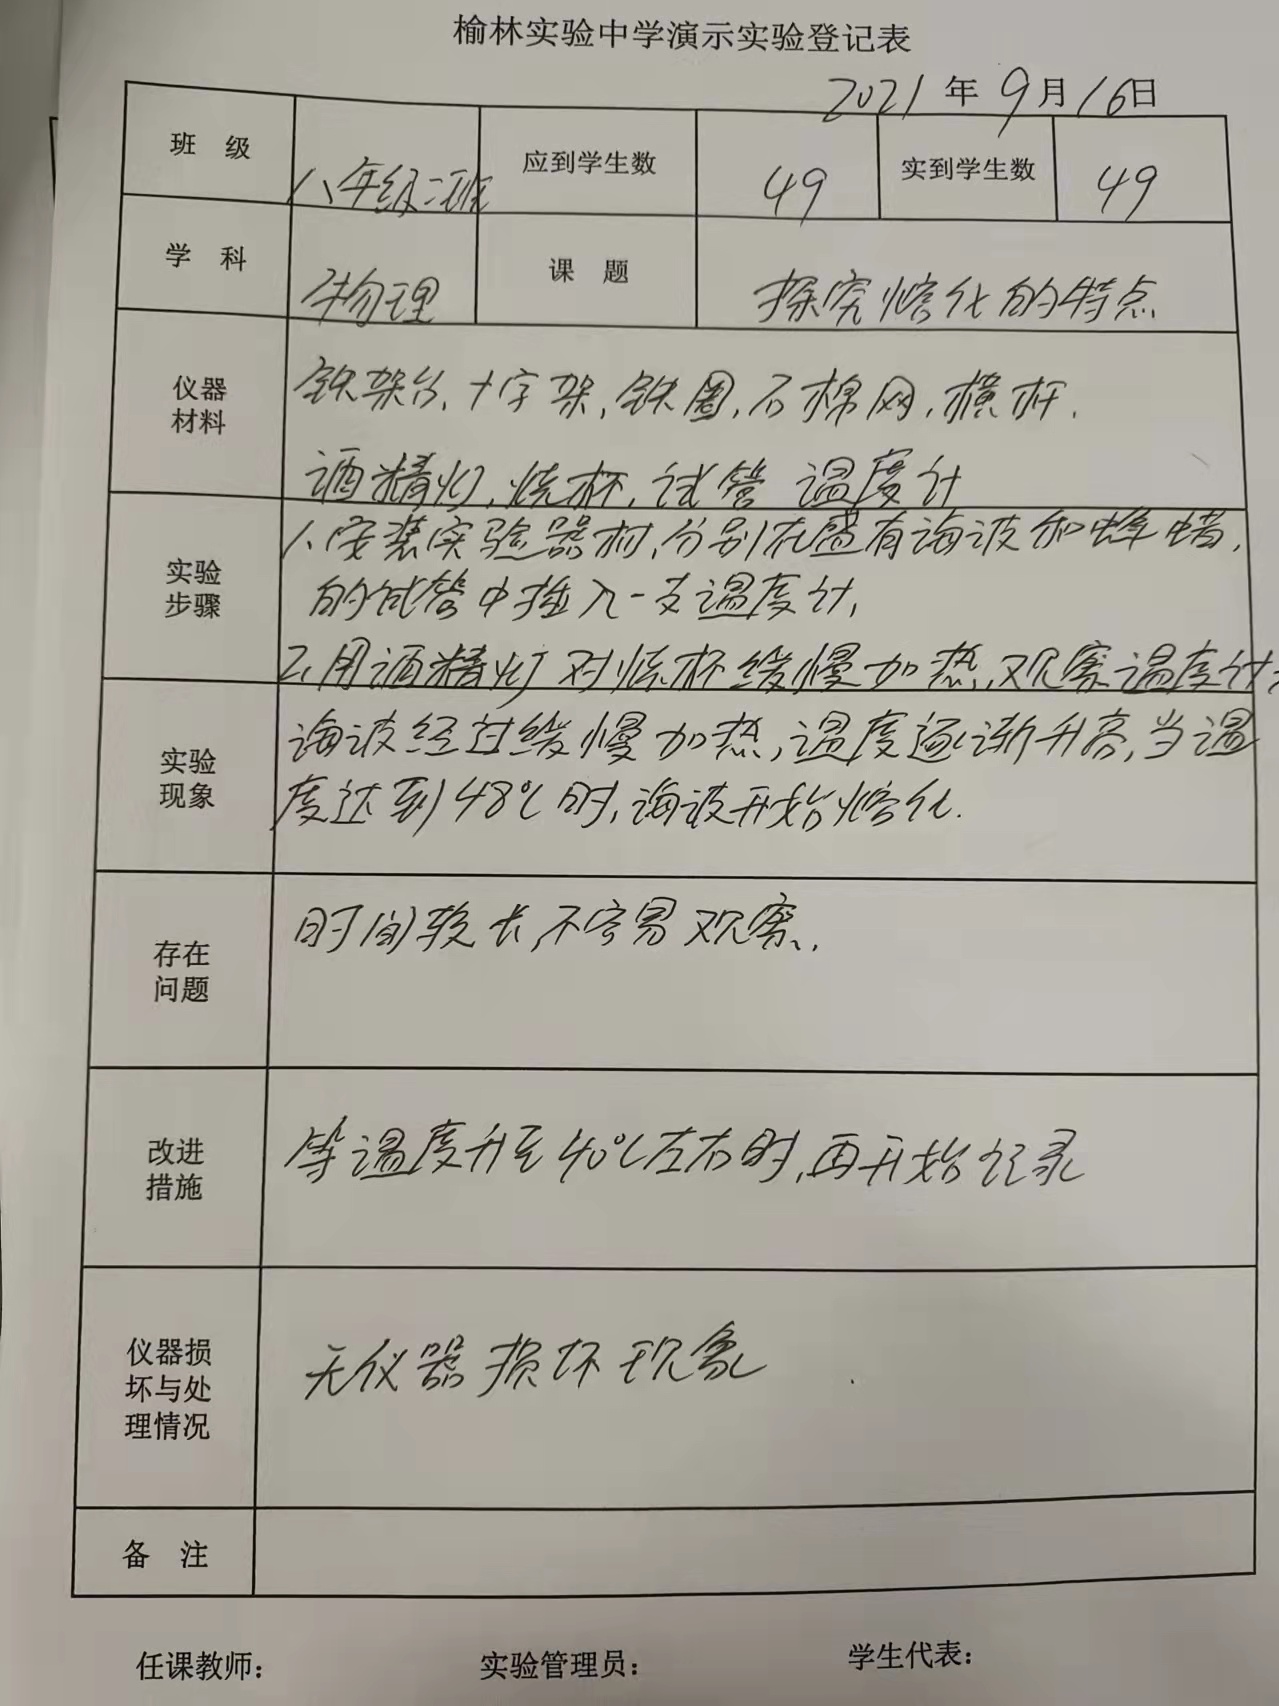 榆林实验中学演示实验登记表
2021年9月16日
班 级 八年级二班 应到学生数 49 实到学生数 49
学 科 物理 课 题 探究熔化的特点
仪器材料 铁架台、十字架、铁圈、石棉网、横杆、
酒精灯、烧杯、试管 温度计
实验步骤 1、安装实验器材,分别在盛有海波和蜂蜡,
的试管中插入一支温度计,
2、用酒精灯对烧杯缓慢加热,观察温度计
实验现象 海波经过缓慢加热,温度逐渐升高,当温
度达到48℃时,海波开始熔化.
存在问题 时间较长,不容易观察、
改进措施 等温度升至40℃左右时,再开始记录
仪器损坏与处理情况 无仪器损坏现象
备 注
任课教师: 实验管理员: 学生代表: